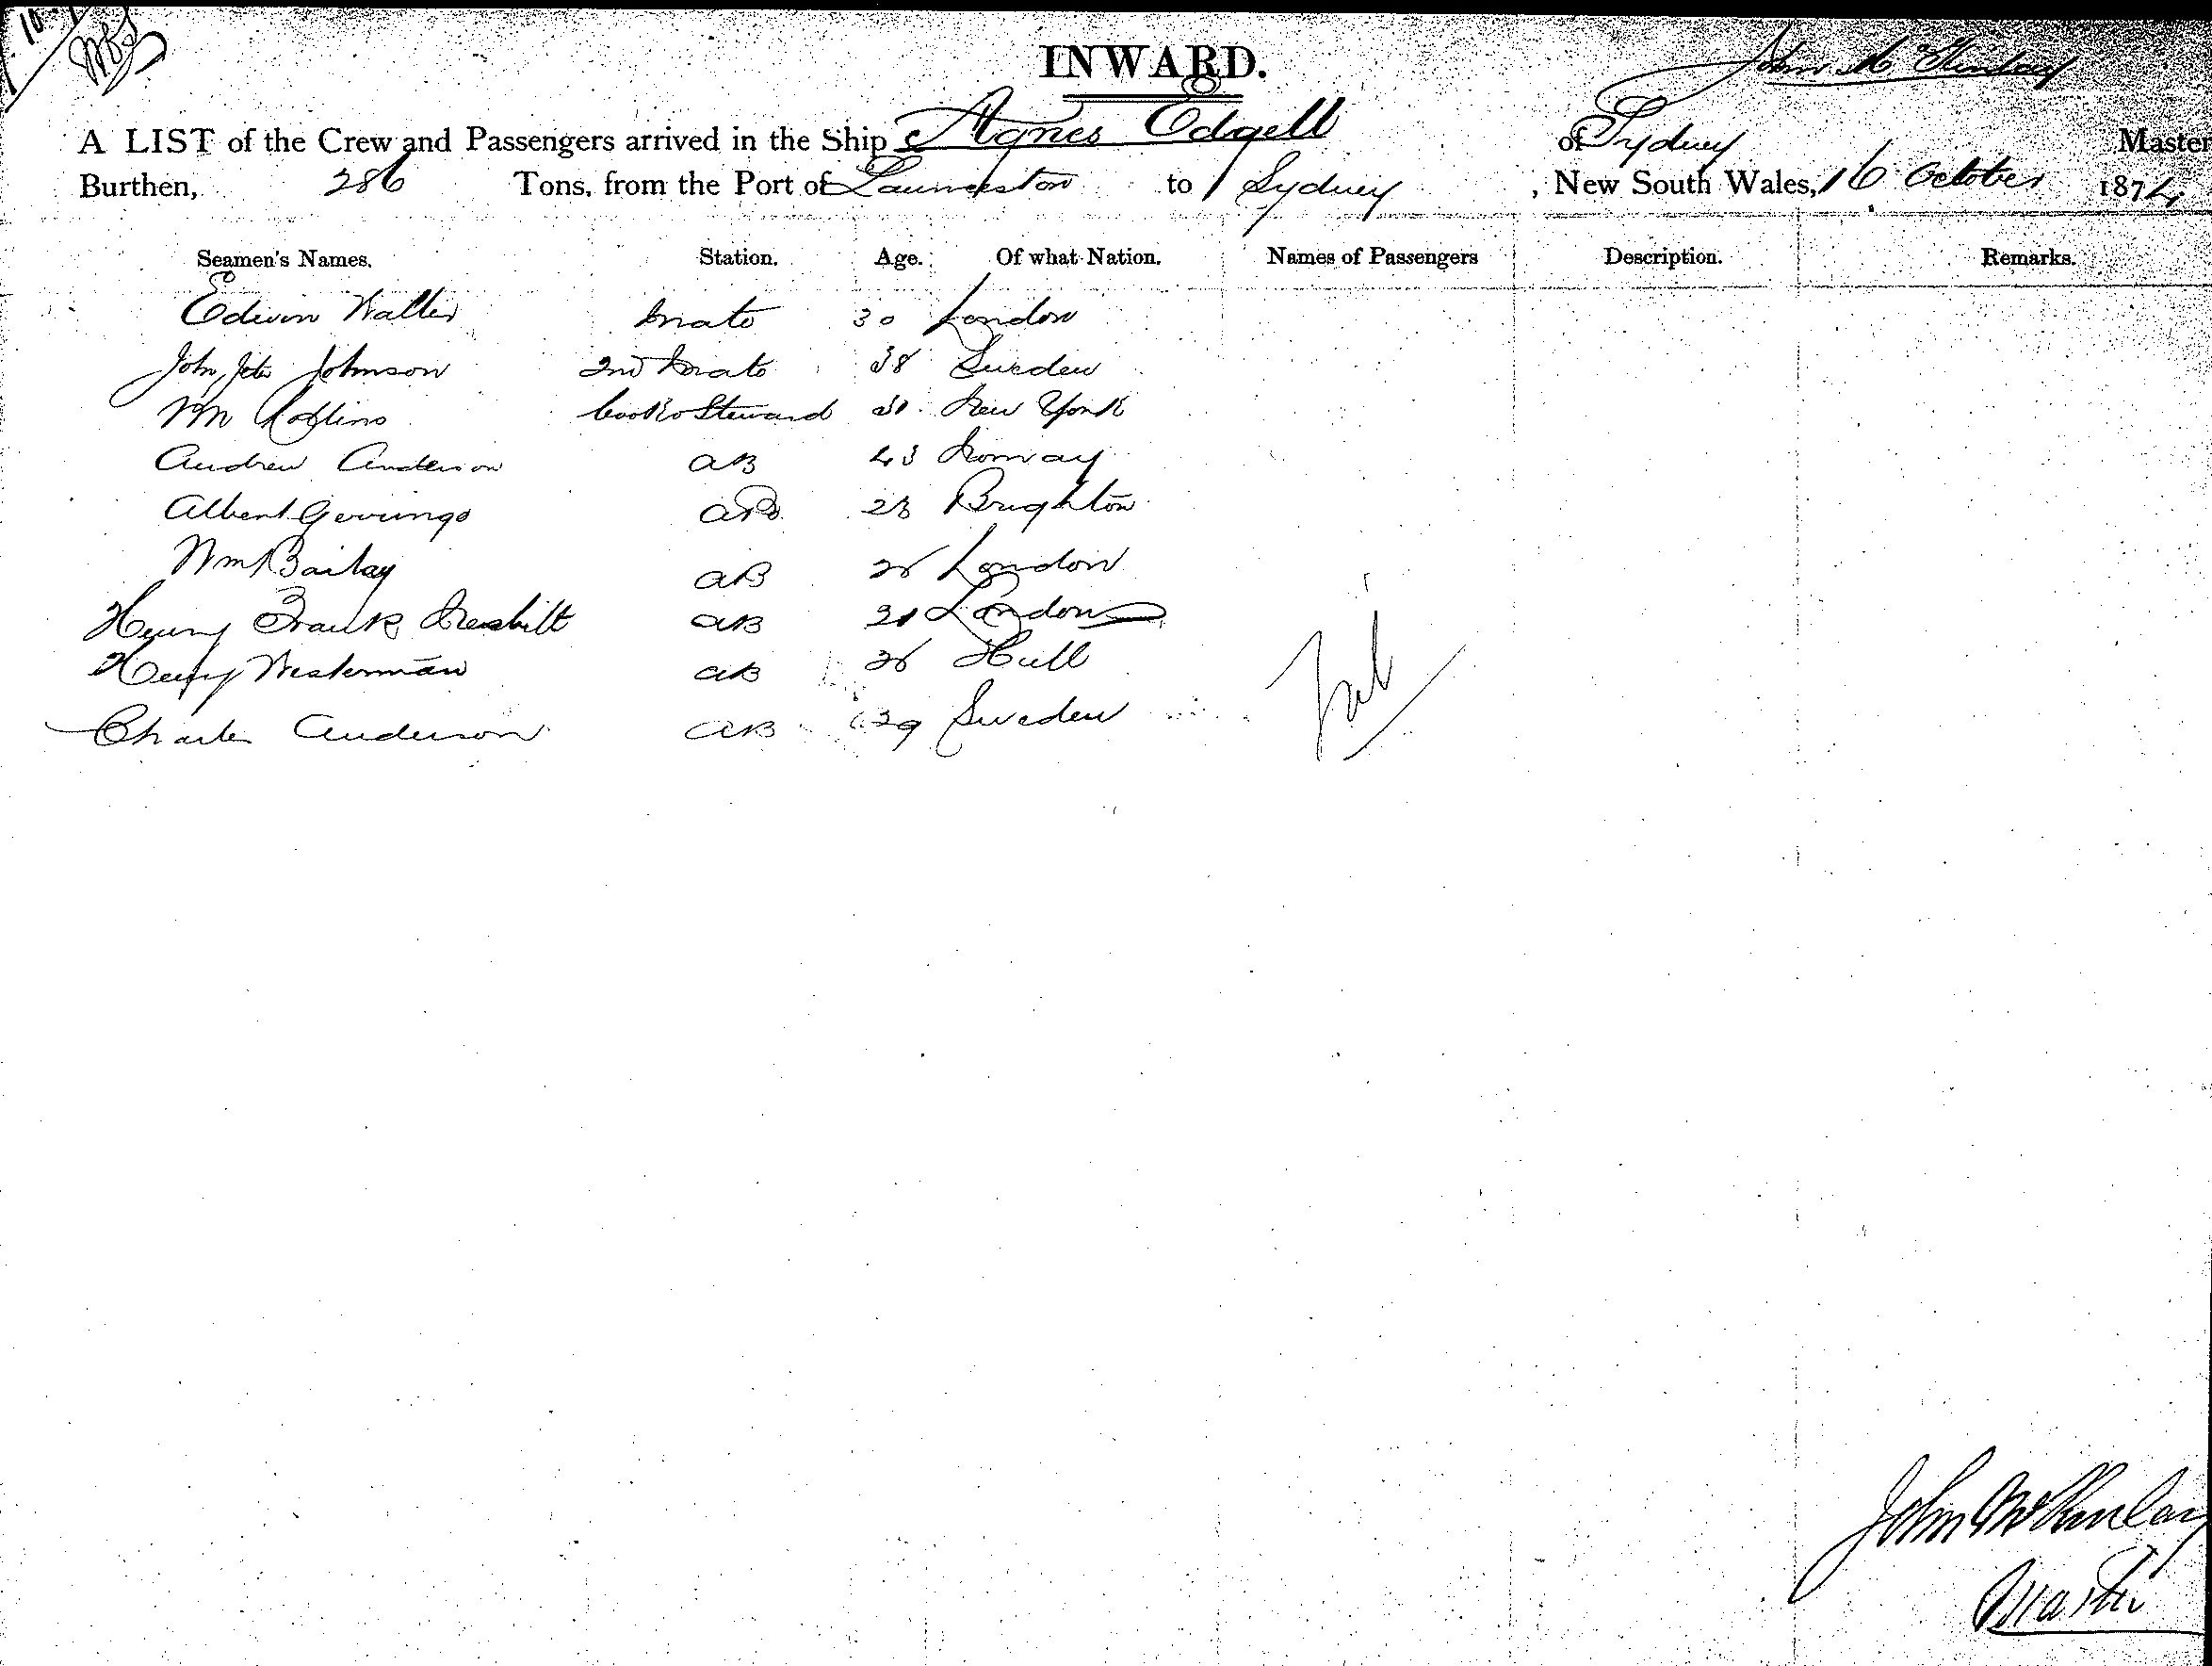 INWARD.
A LIST of the Crew and Passengers arrived in the Ship Agnes Edgell of Sydney John McKinlay Master
Burthen, 286 Tons, from the Port of Launceston to Sydney, New South Wales, 16 October 1874
Seamen's Names. Station. Age. Of what Nation. Names of Passengers Description. Remarks.
Edwin Walter mate 30 London
John Peter Johnson 2nd mate 38 Sweden
Wm Cook & Steward New York
Andrew Anderson AB 43 Norway
Albert AB Brighton
Wm Bailay AB London
Henry Frank Nesbitt AB London
Henry Westerman AB Hull
Nil
Charles Anderson AB 29 Sweden
John McKinlay
Master